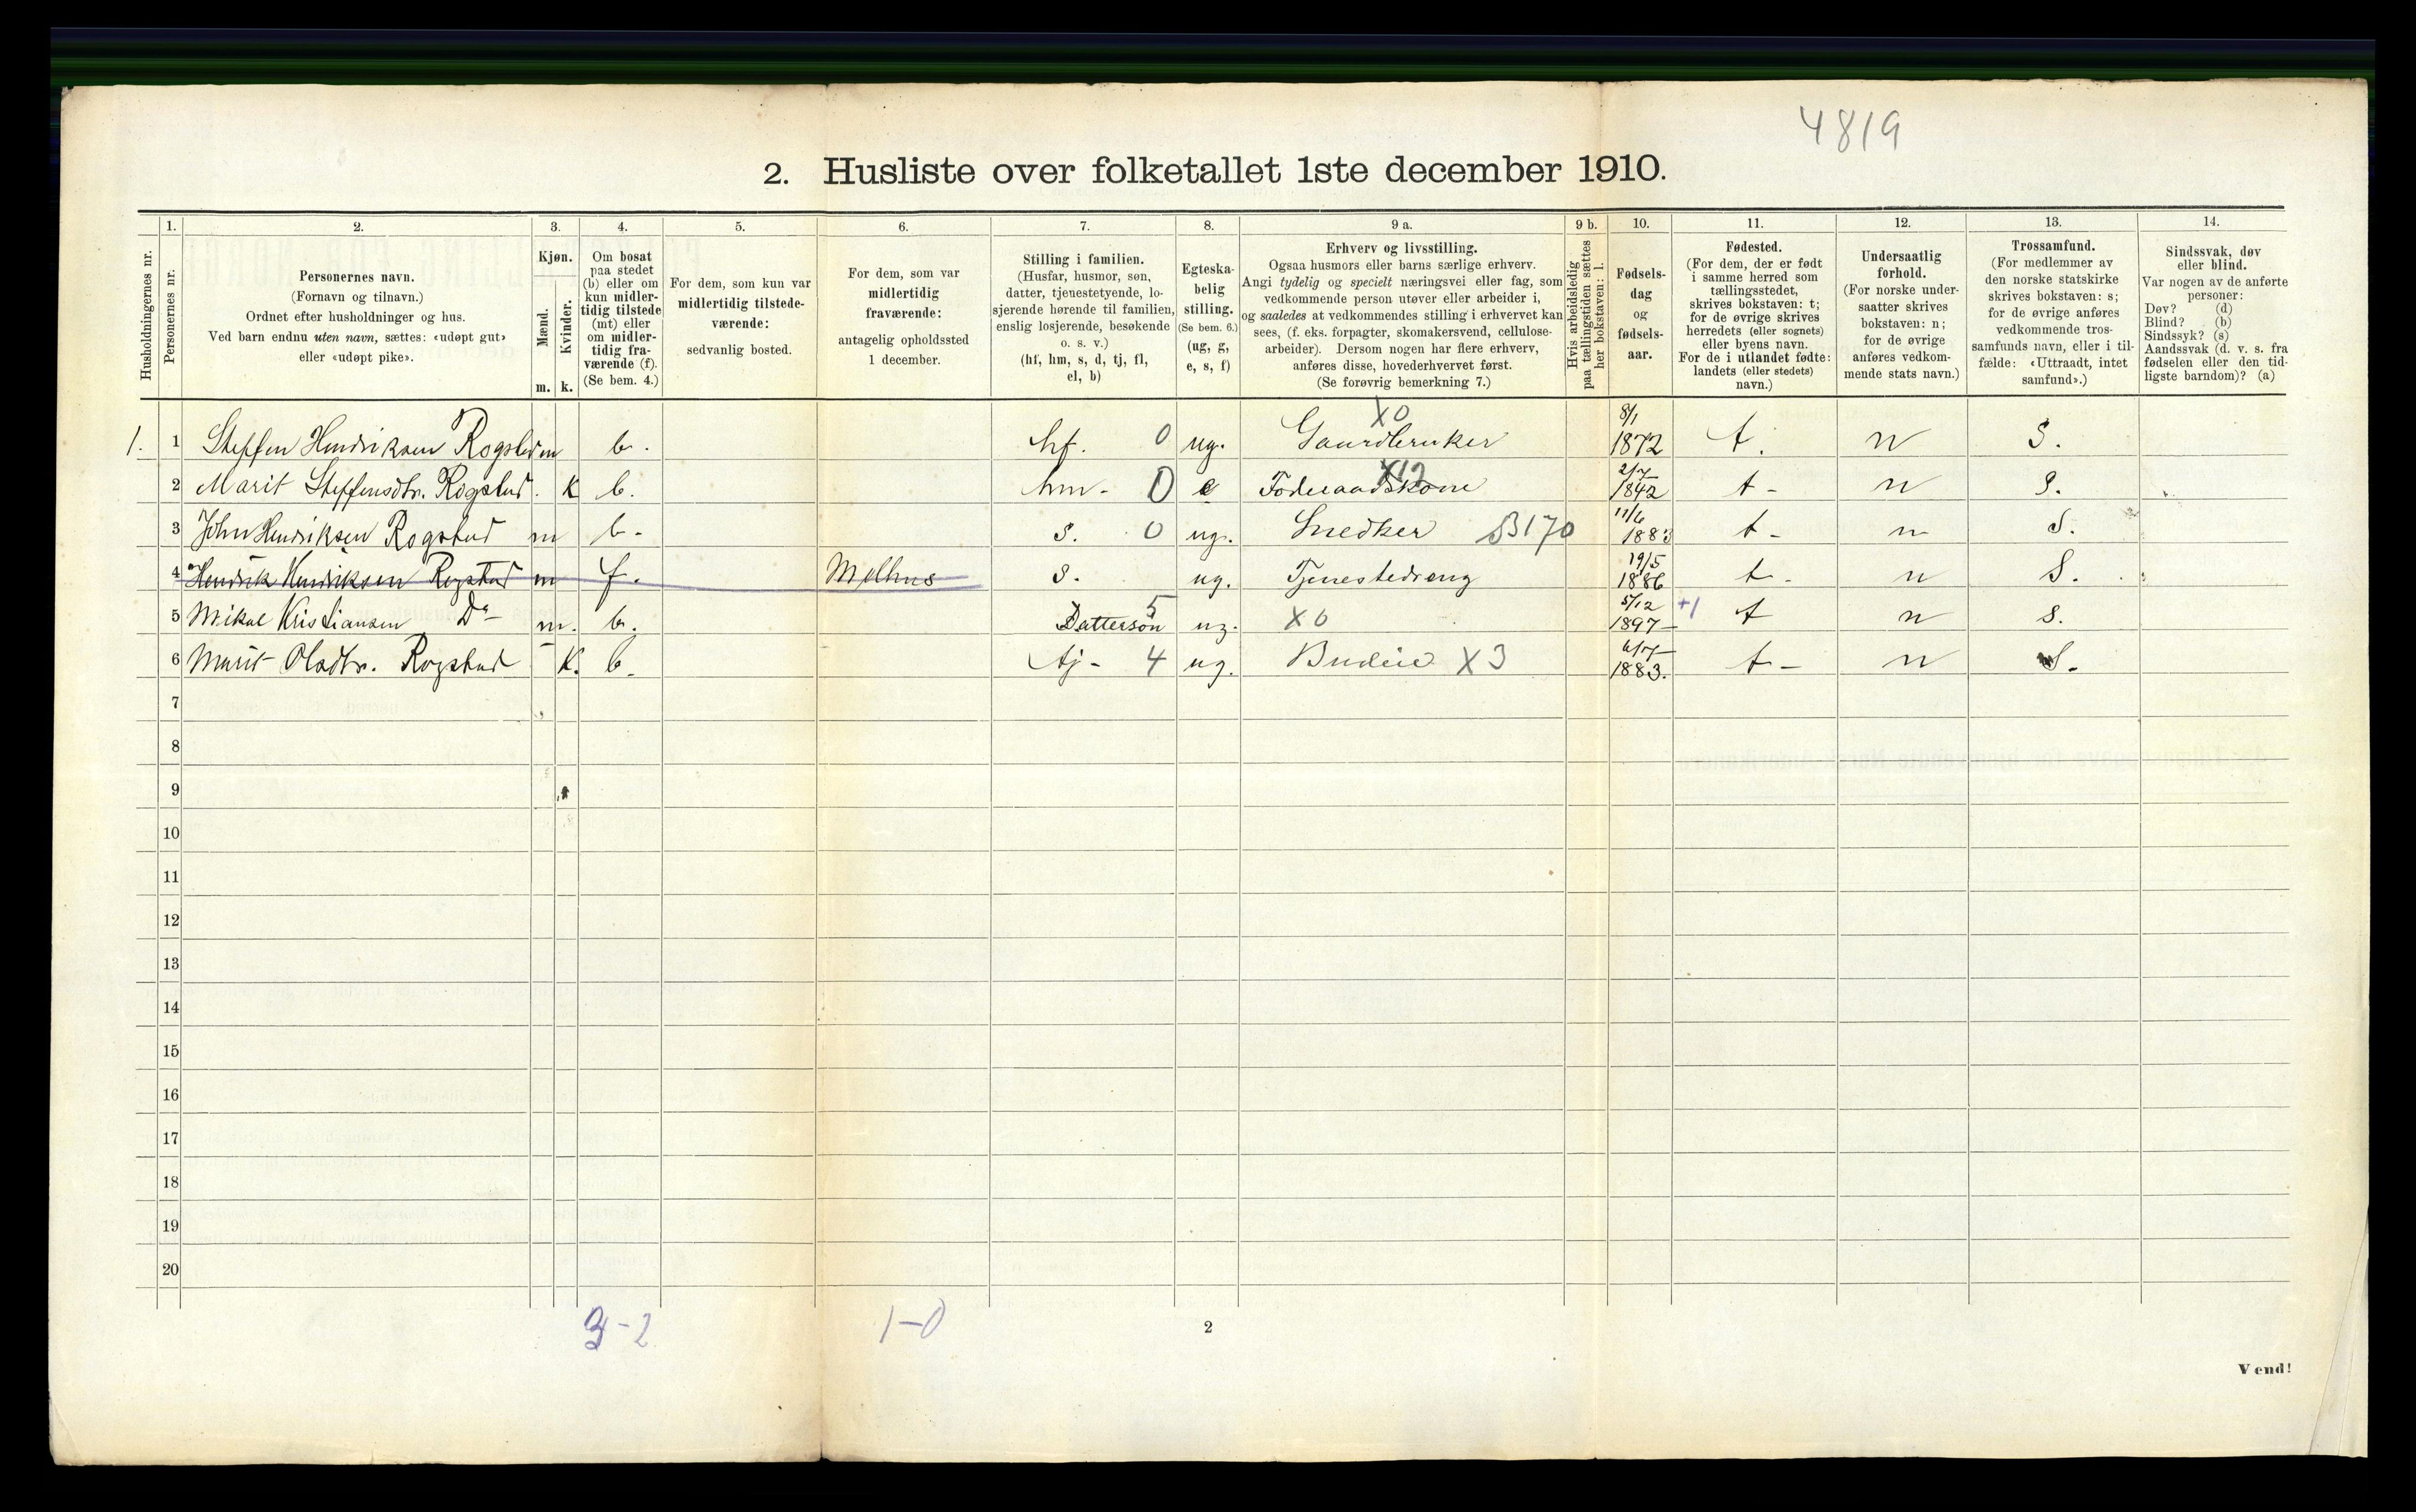 4819
2. Husliste over folketallet 1ste december 1910.
Husholdningernes nr.
1.
Personernes nr.
2.
Personernes navn.
(Fornavn og tilnavn.)
Ordnet efter husholdninger og hus.
Ved barn endnu uten navn, sættes: «udøpt gut»
eller «udøpt pike».
3.
Kjøn.
Mænd.
Kvinder.
m. k.
4.
Om bosat
paa stedet
(b) eller om
kun midler-
tidig tilstede
(mt) eller
om midler-
tidig fra-
værende (f).
(Se bem. 4.)
5.
For dem, som kun var
midlertidig tilstede-
værende:
sedvanlig bosted.
6.
For dem, som var
midlertidig
fraværende:
antagelig opholdssted
1 december.
7.
Stilling i familien.
(Husfar, husmor, søn,
datter, tjenestetyende, lo-
sjerende hørende til familien,
enslig losjerende, besøkende
o. s. v.)
(hf, hm, s, d, tj, fl,
el, b)
8.
Egteska-
belig
stilling.
(Se bem. 6.)
(ug, g,
e, s, f)
9 a.
Erhverv og livsstilling.
Ogsaa husmors eller barns særlige erhverv.
Angi tydelig og specielt næringsvei eller fag, som
vedkommende person utøver eller arbeider i,
og saaledes at vedkommendes stilling i erhvervet kan
sees, (f. eks. forpagter, skomakersvend, cellulose-
arbeider). Dersom nogen har flere erhverv,
anføres disse, hovederhvervet først.
(Se forøvrig bemerkning 7.)
9 b.
Hvis arbeidsledig
paa tællingstiden sættes
her bokstaven: l.
10.
Fødsels-
dag
og
fødsels-
aar.
11.
Fødested.
(For dem, der er født
i samme herred som
tællingsstedet,
skrives bokstaven: t;
for de øvrige skrives
herredets (eller sognets)
eller byens navn.
For de i utlandet fødte:
landets (eller stedets)
navn.)
12.
Undersaatlig
forhold.
(For norske under-
saatter skrives
bokstaven: n;
for de øvrige
anføres vedkom-
mende stats navn.)
13.
Trossamfund.
(For medlemmer av
den norske statskirke
skrives bokstaven: s;
for de øvrige anføres
vedkommende tros-
samfunds navn, eller i til-
fælde: «Uttraadt, intet
samfund».)
14.
Sindssvak, døv
eller blind.
Var nogen av de anførte
personer:
Døv? (d)
Blind? (b)
Sindssyk? (s)
Aandssvak (d. v. s. fra
fødselen eller den tid-
ligste barndom)? (a)
1. 1 Steffen Hendriksen Rogstad m b. hf. 0 ug. Gaardbruker X0 8/1 1872 t. n S.
2 Marit Steffensdtr. Rogstad. K b. hm- 0 e Foderaadskone X12 2/7 1842 t- n S.
3 John Hendriksen Rogstad m b- s. 0 ug. Snedker B170 11/6 1883 t- n S.
4 Hendrik Hendriksen Rogstad m f. Melhus s. ug. Tjenestedreng 19/5 1886 t- n S.
5 Mikal Kristiansen Do m. b. Dattersøn 5 ug. X0 5/12 1897 +1 t n S.
6 Marit Olsdtr. Rogstad K. b. tj- 4 ug. Budeie X3 6/7 1883. t- n S.
7
8
9
10
11
12
13
14
15
16
17
18
19
20
3-2 1-0
2
Vend!